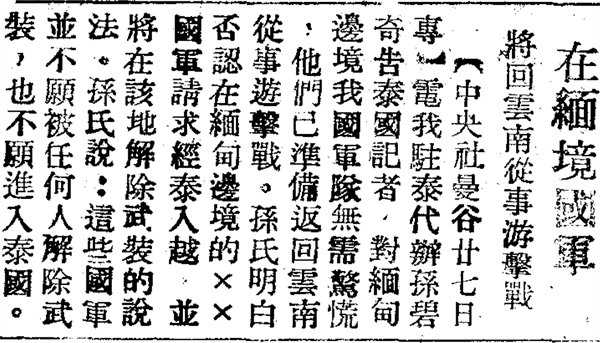 在緬境國軍
將回雲南從事游擊戰
【中央社曼谷廿七日
專】電我駐泰代辦孫碧
奇告泰國記者，對緬甸
邊境我國軍隊無需驚慌
，他們已準備返回雲南
從事遊擊戰。孫氏明白
否認在緬甸邊境的××
國軍請求經泰入越 並
將在該地解除武裝的說
法。孫氏說：這些國軍
並不願被任何人解除武
裝，也不願進入泰國。